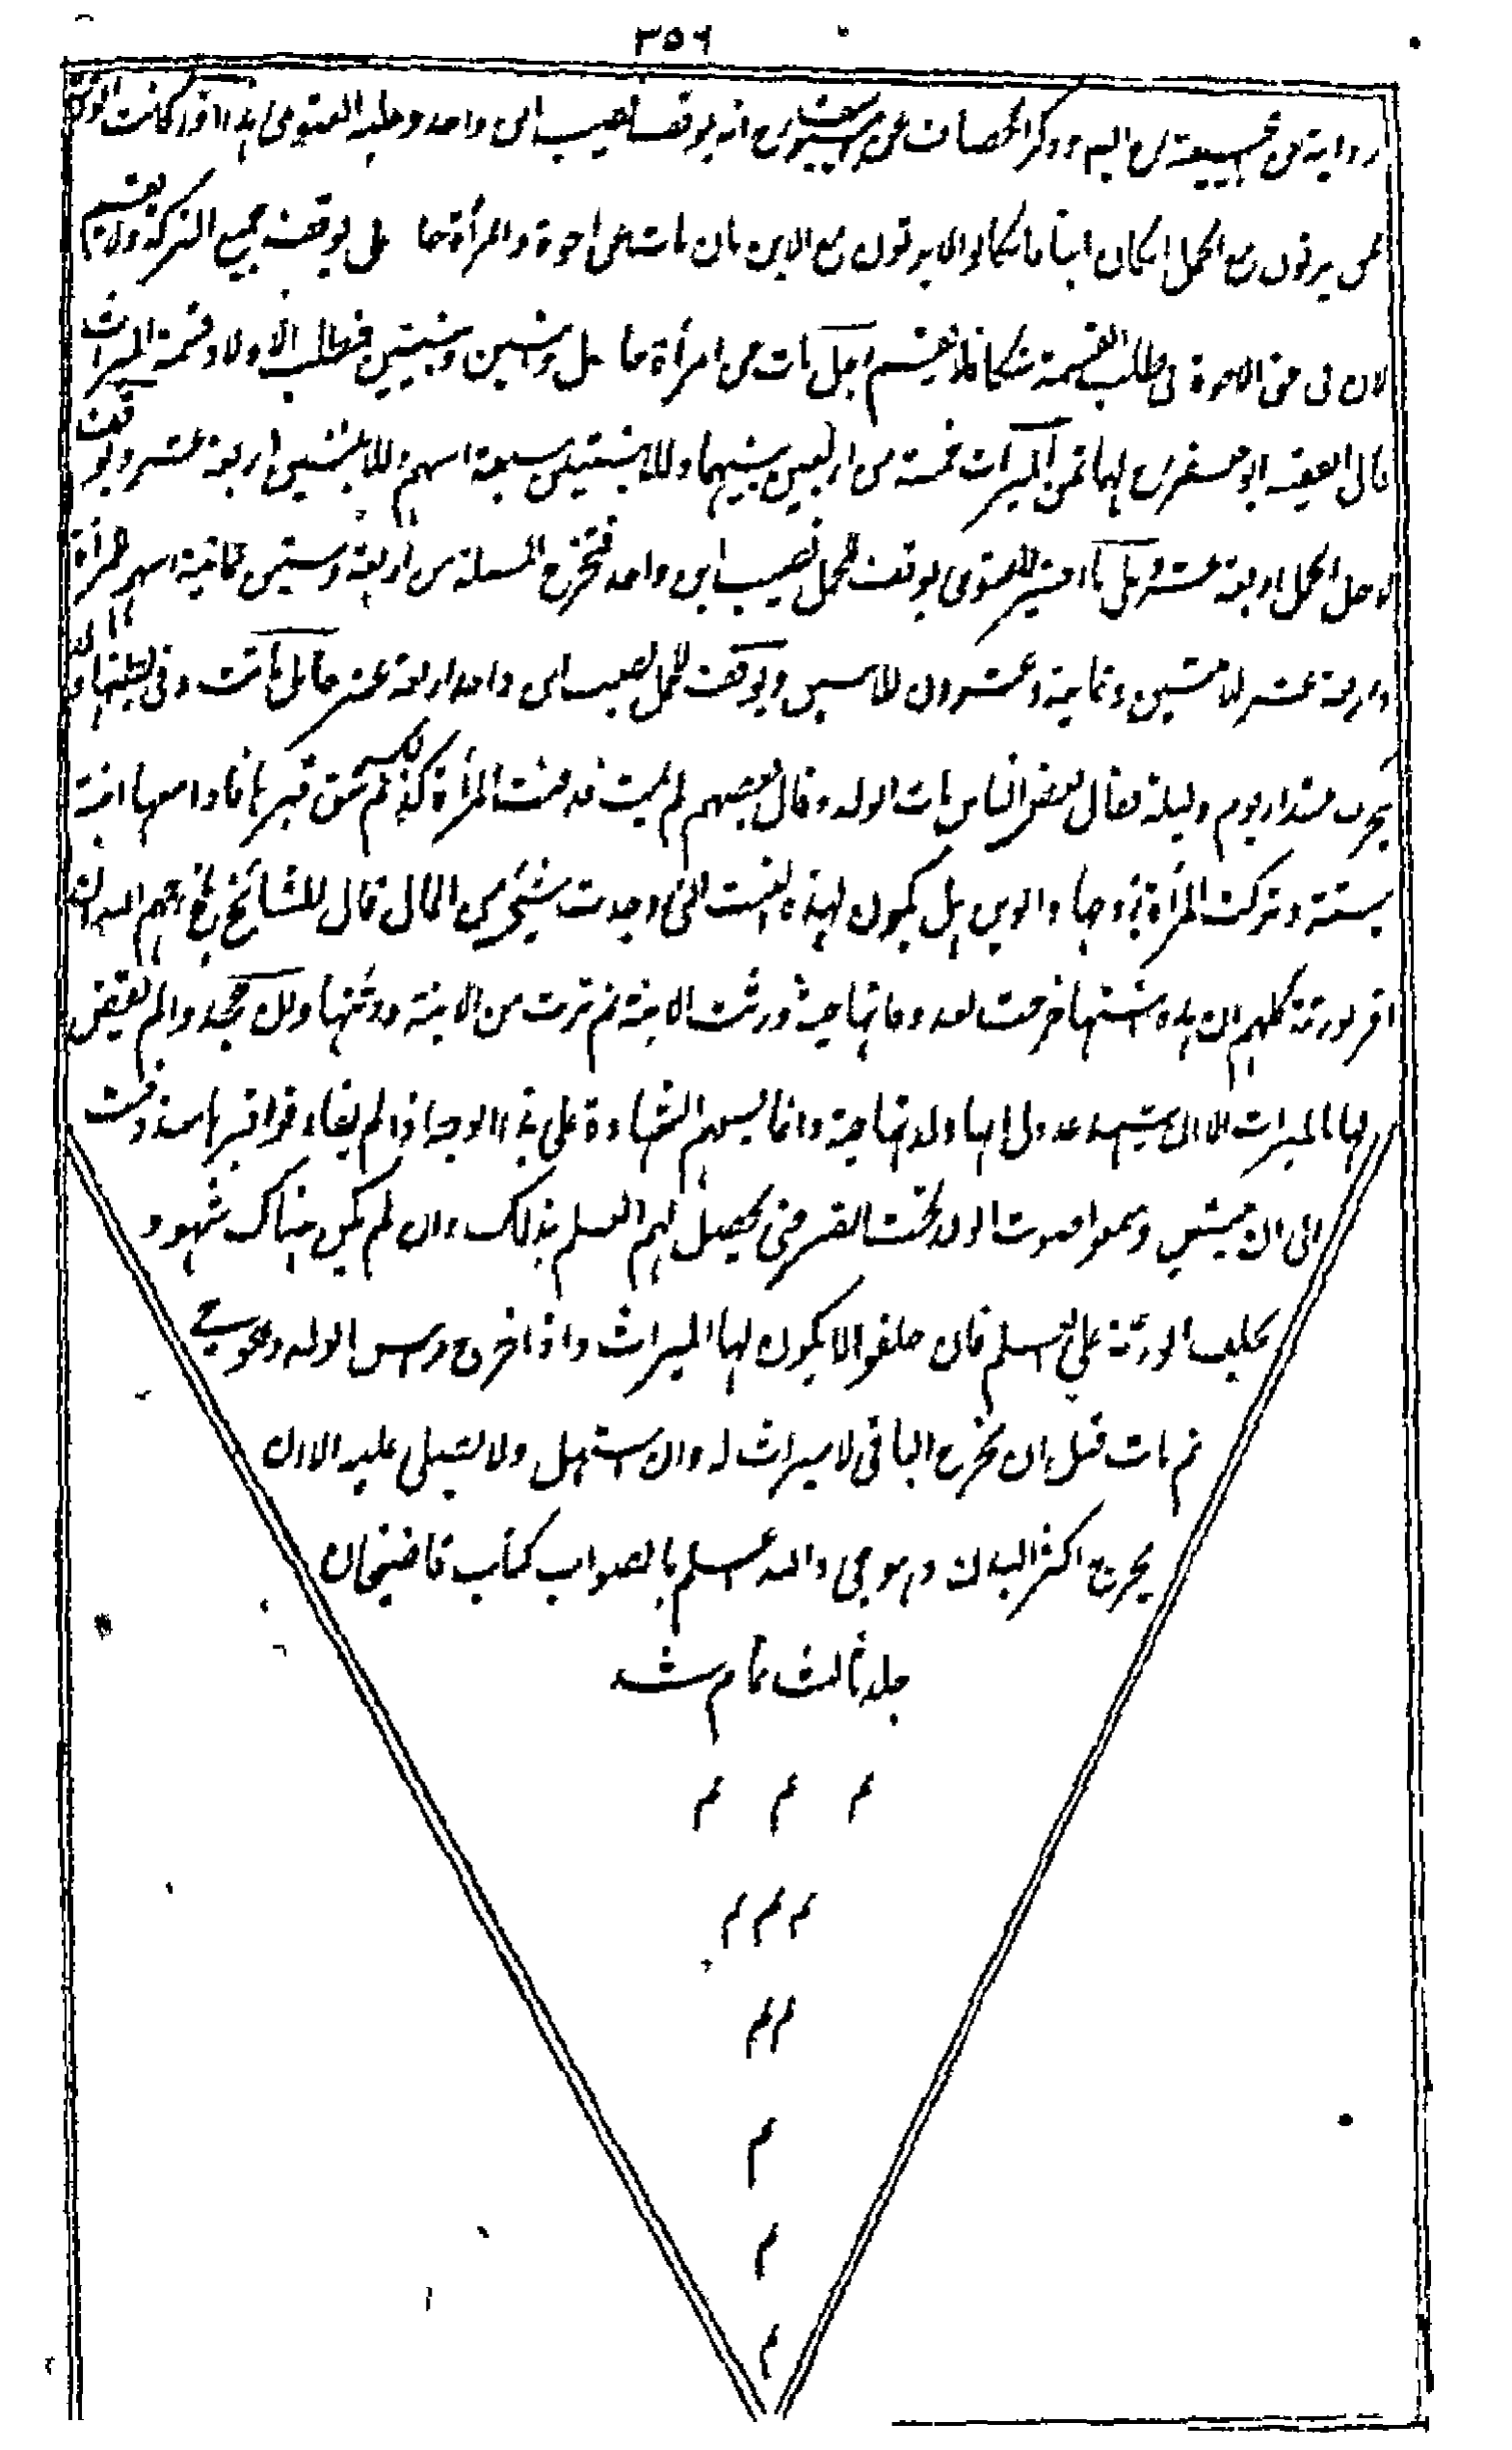 ٣٥٦
رواية عن حنيفة رح اليه وذكر الخصاف عن ابي يوسف رح انه يوقف نصيب ابن واحد وعليه الفتوى هذا اذا كانت الورثة
ممن يرثون مع الحمل ان كان ابنا فان كانوا لا يرثون مع الابن بان مات عن اخوة والمرأة حامل يوقف جميع التركة ولا يقسم
لان في حق الاخوة في طلب القسمة شكا فلا يقسم رجل مات عن امرأة حامل وابنين وبنتين فطلب الاولاد قسمة الميراث
قال الفقيه ابو جعفر رح لها ثمن الميراث خمسة من اربعين بينهما وللابنتين سبعة اسهم وللابنين اربعة عشر ويوقف
لاجل الحمل اربعة عشر وقيل ما اختير للفتوى يوقف للحمل نصيب ابن واحد فتخرج المسئلة من اربعة وستين ثمانية اسهم للمرأة
واربعة عشر للابنتين وثمانية وعشرون للابنين ويوقف للحمل نصيب ابن واحد اربعة عشر حامل ماتت وفي بطنها ولد
يتحرك مقدار يوم وليلة فقال بعض الناس مات الولد وقال بعضهم لم يمت فدفنت المرأة كذلك ثم نبش قبرها فاذا معها ابنة
ميتة وتركت المرأة زوجها وابوين هل يكون لهذه البنت التي وجدت شيء من المال قال المشائخ بلخ رحمهم الله ان
اقر الورثة كلهم ان هذه ابنتها خرجت بعد وفاتها حية ورثت الابنة ثم ترث من الابنة ورثتها وان جحدوا لم يقض
لها بالميراث الا ان يشهد عدول انها ولدتها حية وانما يسعهم الشهادة على هذا الوجه اذا لم يفارقوا قبرها منذ دفنت
الى ان نبش وسمعوا صوت الولد تحت القبر حتى يحصل لهم العلم بذلك وان لم يكن هناك شهود
يحلف الورثة على العلم فان حلفوا لا يكون لها الميراث واذا خرج رأس الولد وهو حي
ثم مات قبل ان يخرج الباقي لا ميراث له وان استهل ولا يصلى عليه الا ان
يخرج اكثر البدن وهو حي والله اعلم بالصواب كتاب قاضيخان
جلد ثالث تمام شد
م م م
م م م
م م
م
م
م